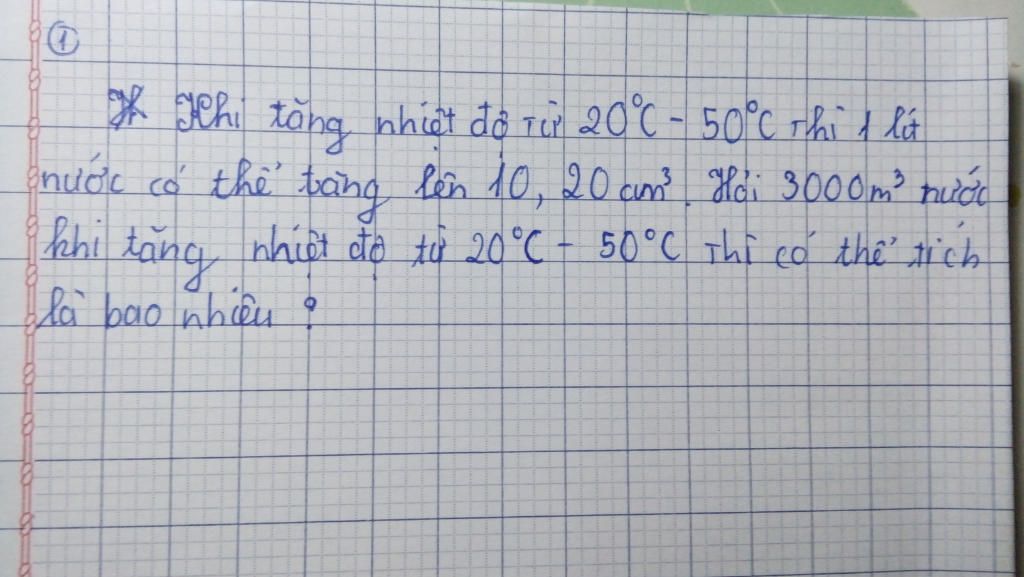 ①
Khi tăng nhiệt độ từ 20°C - 50°C thì 1 lít
nước có thể tăng lên 10,20 cm³. Hỏi 3000m³ nước
khi tăng nhiệt độ từ 20°C - 50°C thì có thể tích
là bao nhiêu?